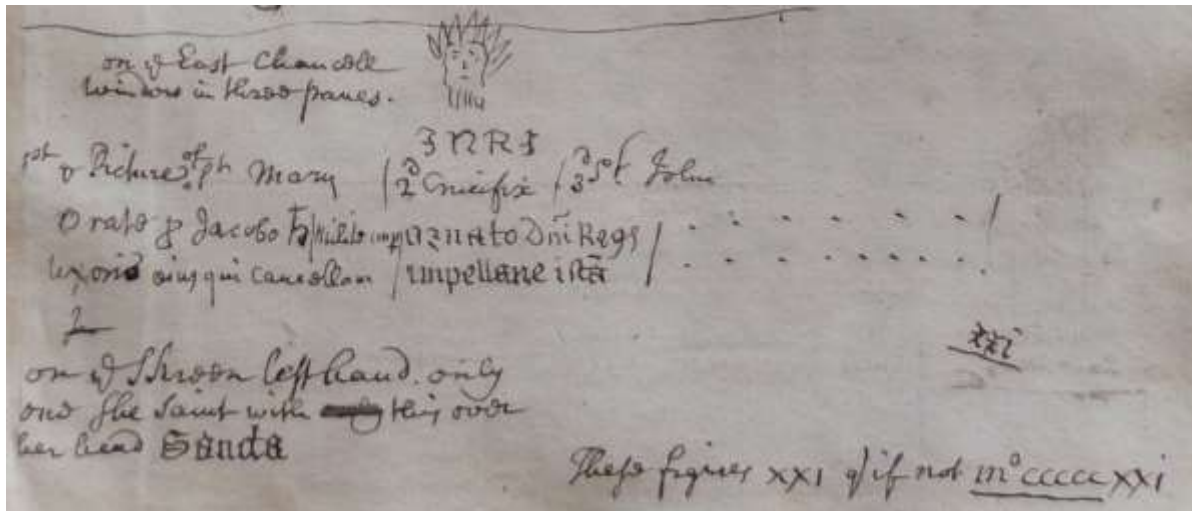 on ye East Chancell
window in three panes.
INRI
1st ye Picture of St Mary / 2d Crucifix / 3d St John
Orate p Jacobo
uxoris eius qui cancellam / impellane istā
xxi
on ye Skreen left hand. only
one she Saint with this over
her head Sancta
These figures XXI q if not mo ccccc XXi